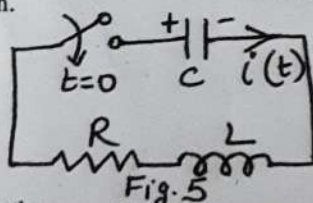 n.
+ -
t=0 C i(t)
R L
Fig. 5